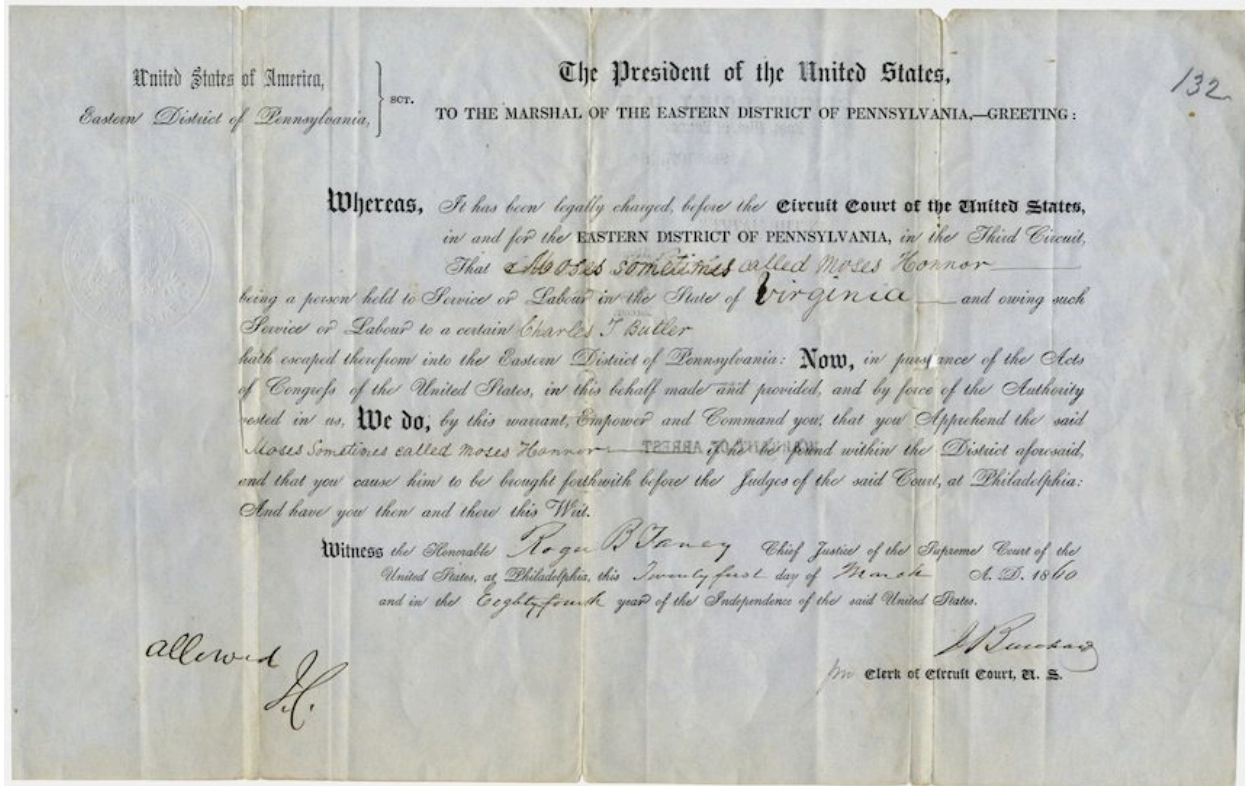 132
United States of America,
Eastern District of Pennsylvania,
SCT.
The President of the United States,
TO THE MARSHAL OF THE EASTERN DISTRICT OF PENNSYLVANIA,—GREETING:
Whereas, It has been legally charged, before the Circuit Court of the United States,
in and for the EASTERN DISTRICT OF PENNSYLVANIA, in the Third Circuit,
That Moses sometimes called Moses Honnor
being a person held to Service or Labour in the State of Virginia and owing such
Service or Labour to a certain Charles T Butler
hath escaped therefrom into the Eastern District of Pennsylvania: Now, in pursuance of the Acts
of Congress of the United States, in this behalf made and provided, and by force of the Authority
vested in us, We do, by this warrant, Empower and Command you, that you Apprehend the said
Moses Sometimes called Moses Honnor if he be found within the District aforesaid,
and that you cause him to be brought forthwith before the Judges of the said Court, at Philadelphia:
And have you then and there this Writ.
Witness the Honorable Roger B Taney Chief Justice of the Supreme Court of the
United States, at Philadelphia, this Twenty first day of March A. D. 1860
and in the Eighty fourth year of the Independence of the said United States.
allowed
Clerk of Circuit Court, U. S.